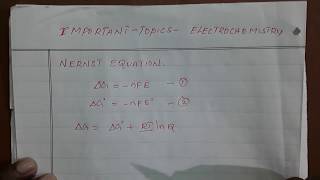 IMPORTANT-TOPICS- ELECTROCHEMISTRY
NERNST EQUATION.
ΔG = -nFE - ①
ΔG° = -nFE° - ②
ΔG = ΔG° + RT ln Q